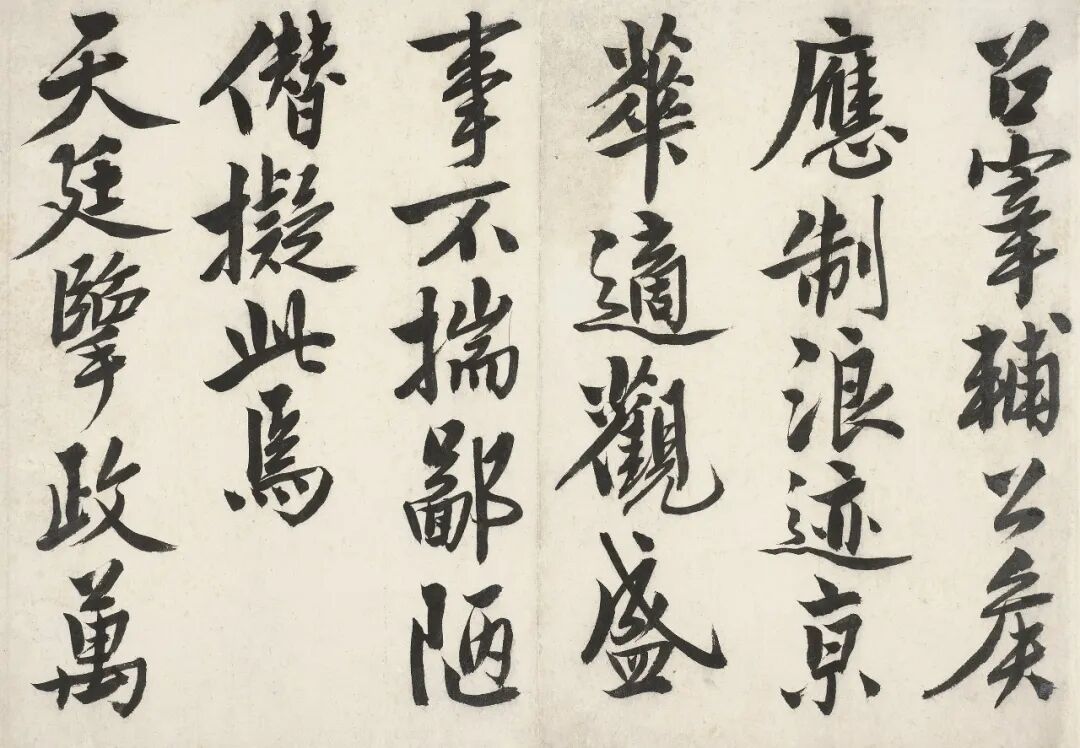 召宰輔公矦
應制浪迹京
華適觀盛
事不揣鄙陋
僣擬此焉
天廷擥政萬